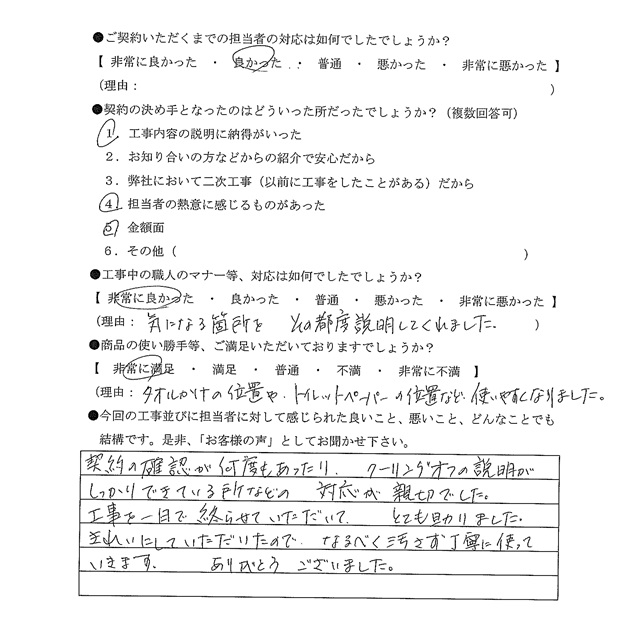 ●ご契約いただくまでの担当者の対応は如何でしたでしょうか?
【 非常に良かった ・ 良かった ・ 普通 ・ 悪かった ・ 非常に悪かった 】
(理由: )
●契約の決め手となったのはどういった所だったでしょうか?(複数回答可)
1. 工事内容の説明に納得がいった
2. お知り合いの方などからの紹介で安心だから
3. 弊社において二次工事(以前に工事をしたことがある)だから
4. 担当者の熱意に感じるものがあった
5. 金額面
6. その他( )
●工事中の職人のマナー等、対応は如何でしたでしょうか?
【 非常に良かった ・ 良かった ・ 普通 ・ 悪かった ・ 非常に悪かった 】
(理由: 気になる箇所を その都度説明してくれました。 )
●商品の使い勝手等、ご満足いただいておりますでしょうか?
【 非常に満足 ・ 満足 ・ 普通 ・ 不満 ・ 非常に不満 】
(理由: タオルかけの位置や、トイレットペーパーの位置など、使いやすくなりました。
●今回の工事並びに担当者に対して感じられた良いこと、悪いこと、どんなことでも
結構です。是非、「お客様の声」としてお聞かせ下さい。
契約の確認が何度もあったり、 クーリングオフの説明が
しっかりできている所などの 対応が 親切でした。
工事を一日で 終らせていただいて、 とても助りました。
きれいにしていただいたので、なるべく汚さず丁寧に使って
いきます、 ありがとう ございました。